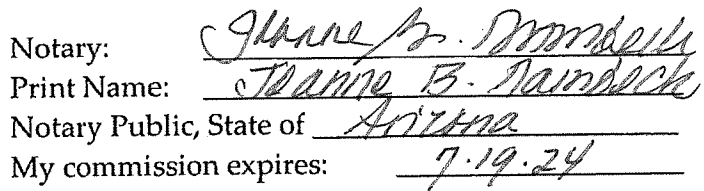 Notary: Jeanne B.
Print Name: Jeanne B.
Notary Public, State of Arizona
My commission expires: 7.19.24